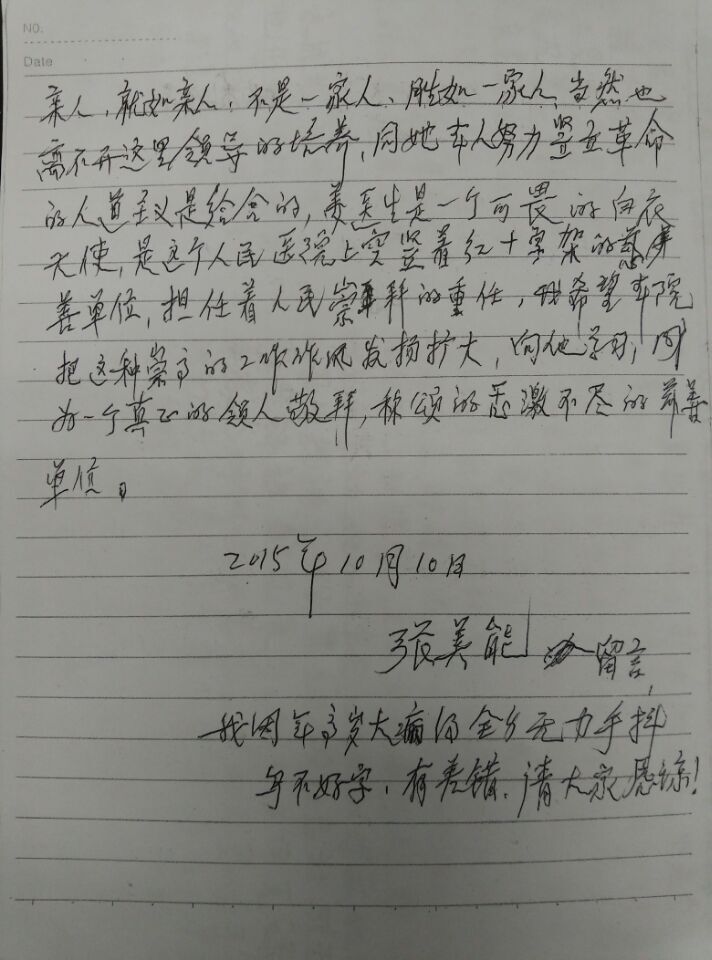 NO.
Date
亲人,就如亲人,不是一家人、胜如一家人,当然也
离不开这里领导的培养,同她本人努力竖立革命
的人道主义是给合的,姜医生是一个可畏的白衣
天使,是这个人民医院上空竖着红十字架的慈
善单位,担任着人民崇拜的重任,我希望本院
把这种崇高的工作作风发扬扩大,向他学习,
为一个真正的领人敬拜,称颂的感激不尽的慈善
单位。
2015年10月10日
张美能 留言,
我因年高岁大病的全身无力手抖
写不好字,有差错,请大家愿谅!